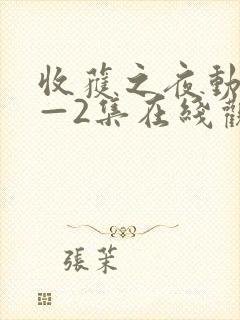 收獲之夜動
一2集在綫觀
張茉